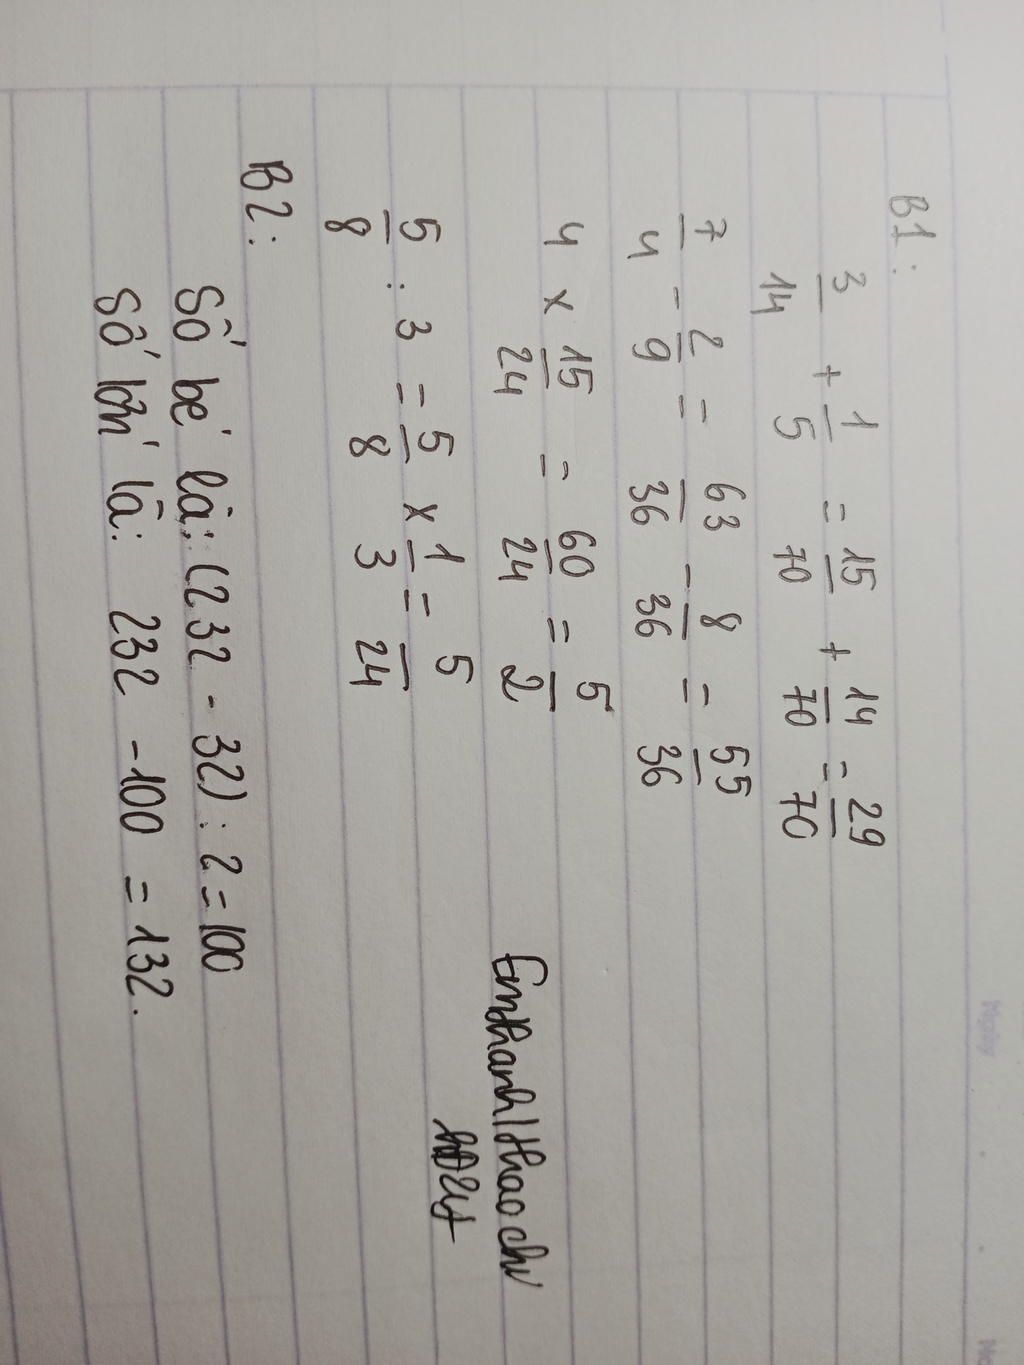 B1:
3/14 + 1/5 = 15/70 + 14/70 = 29/70
7/4 - 2/9 = 63/36 - 8/36 = 55/36
4 x 15/24 = 60/24 = 5/2
5/8 : 3 = 5/8 x 1/3 = 5/24
B2:
Số bé là: (232 - 32) : 2 = 100
Số lớn là: 232 - 100 = 132.